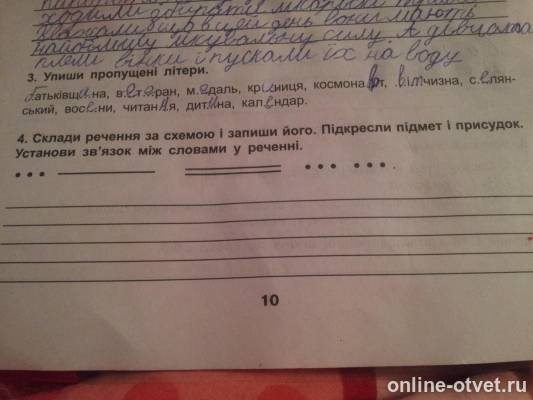 вважали що в цей день вони мають
найбільшу лікувальну силу. А дівчата
плели вінки і пускали їх на воду
3. Упиши пропущені літери.
Батьківщина, ветеран, медаль, криниця, космонавт, вітчизна, селян-
ський, восени, читання, дитина, календар.
4. Склади речення за схемою і запиши його. Підкресли підмет і присудок.
Установи зв'язок між словами у реченні.
10
online-otvet.ru